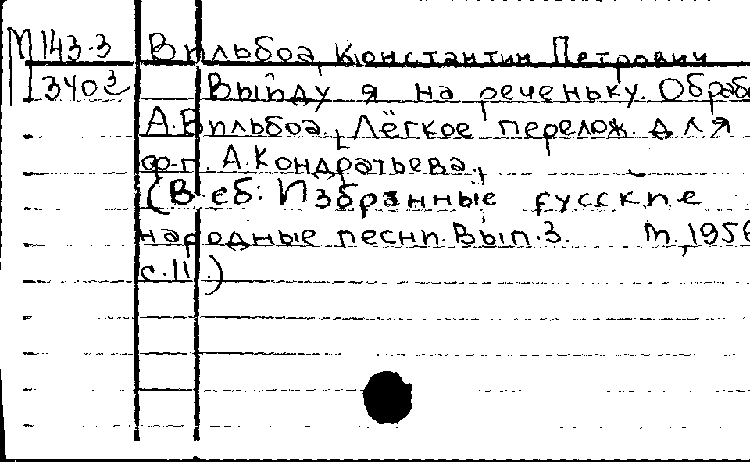 М 143-3 Вильбоа, Константин Петрович
I 3403 Выйду я на реченьку. Обраб
А. Вильбоа., Лёгкое перелож. для
ф-п. А. Кондратьева.,
(В сб: Избранные русские
народные песни. Вып. 3. М., 1956
с. 11.)